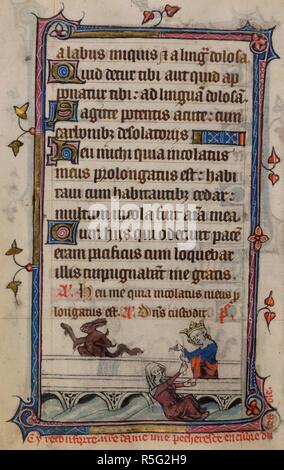 a labiis iniquis ⁊ a ling̃ dolosa.
Quid detur tibi aut quid ap
ponatur tibi: ad linguam dolosã.
Sagitte potentis acute: cum
carbonib; desolatoriis
Heu michi quia incolatus
meus prolongatus est: habi
taui cum habitantibus cedar:
multum incola fuit aĩa mea
Cum hiis qui oderunt pacẽ
eram pacificus cum loquebar
illis inpugnabant me gratis.
A. Heu me quia incolatus meus p
longatus est. A. Dñs custodit p̃s.
Cy reconforte nre dame une pecheresce encuntre du